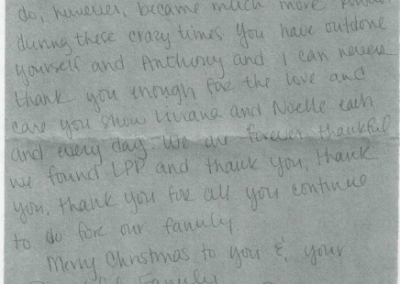 do, however, became much more
during these crazy times. You have outdone
yourself and Anthony and I can never
thank you enough for the love and
care you show Liviana and Noelle each
and every day. We are forever thankful
we found LPP and thank you, thank
you, thank you for all you continue
to do for our family
Merry Christmas to you & your
Family